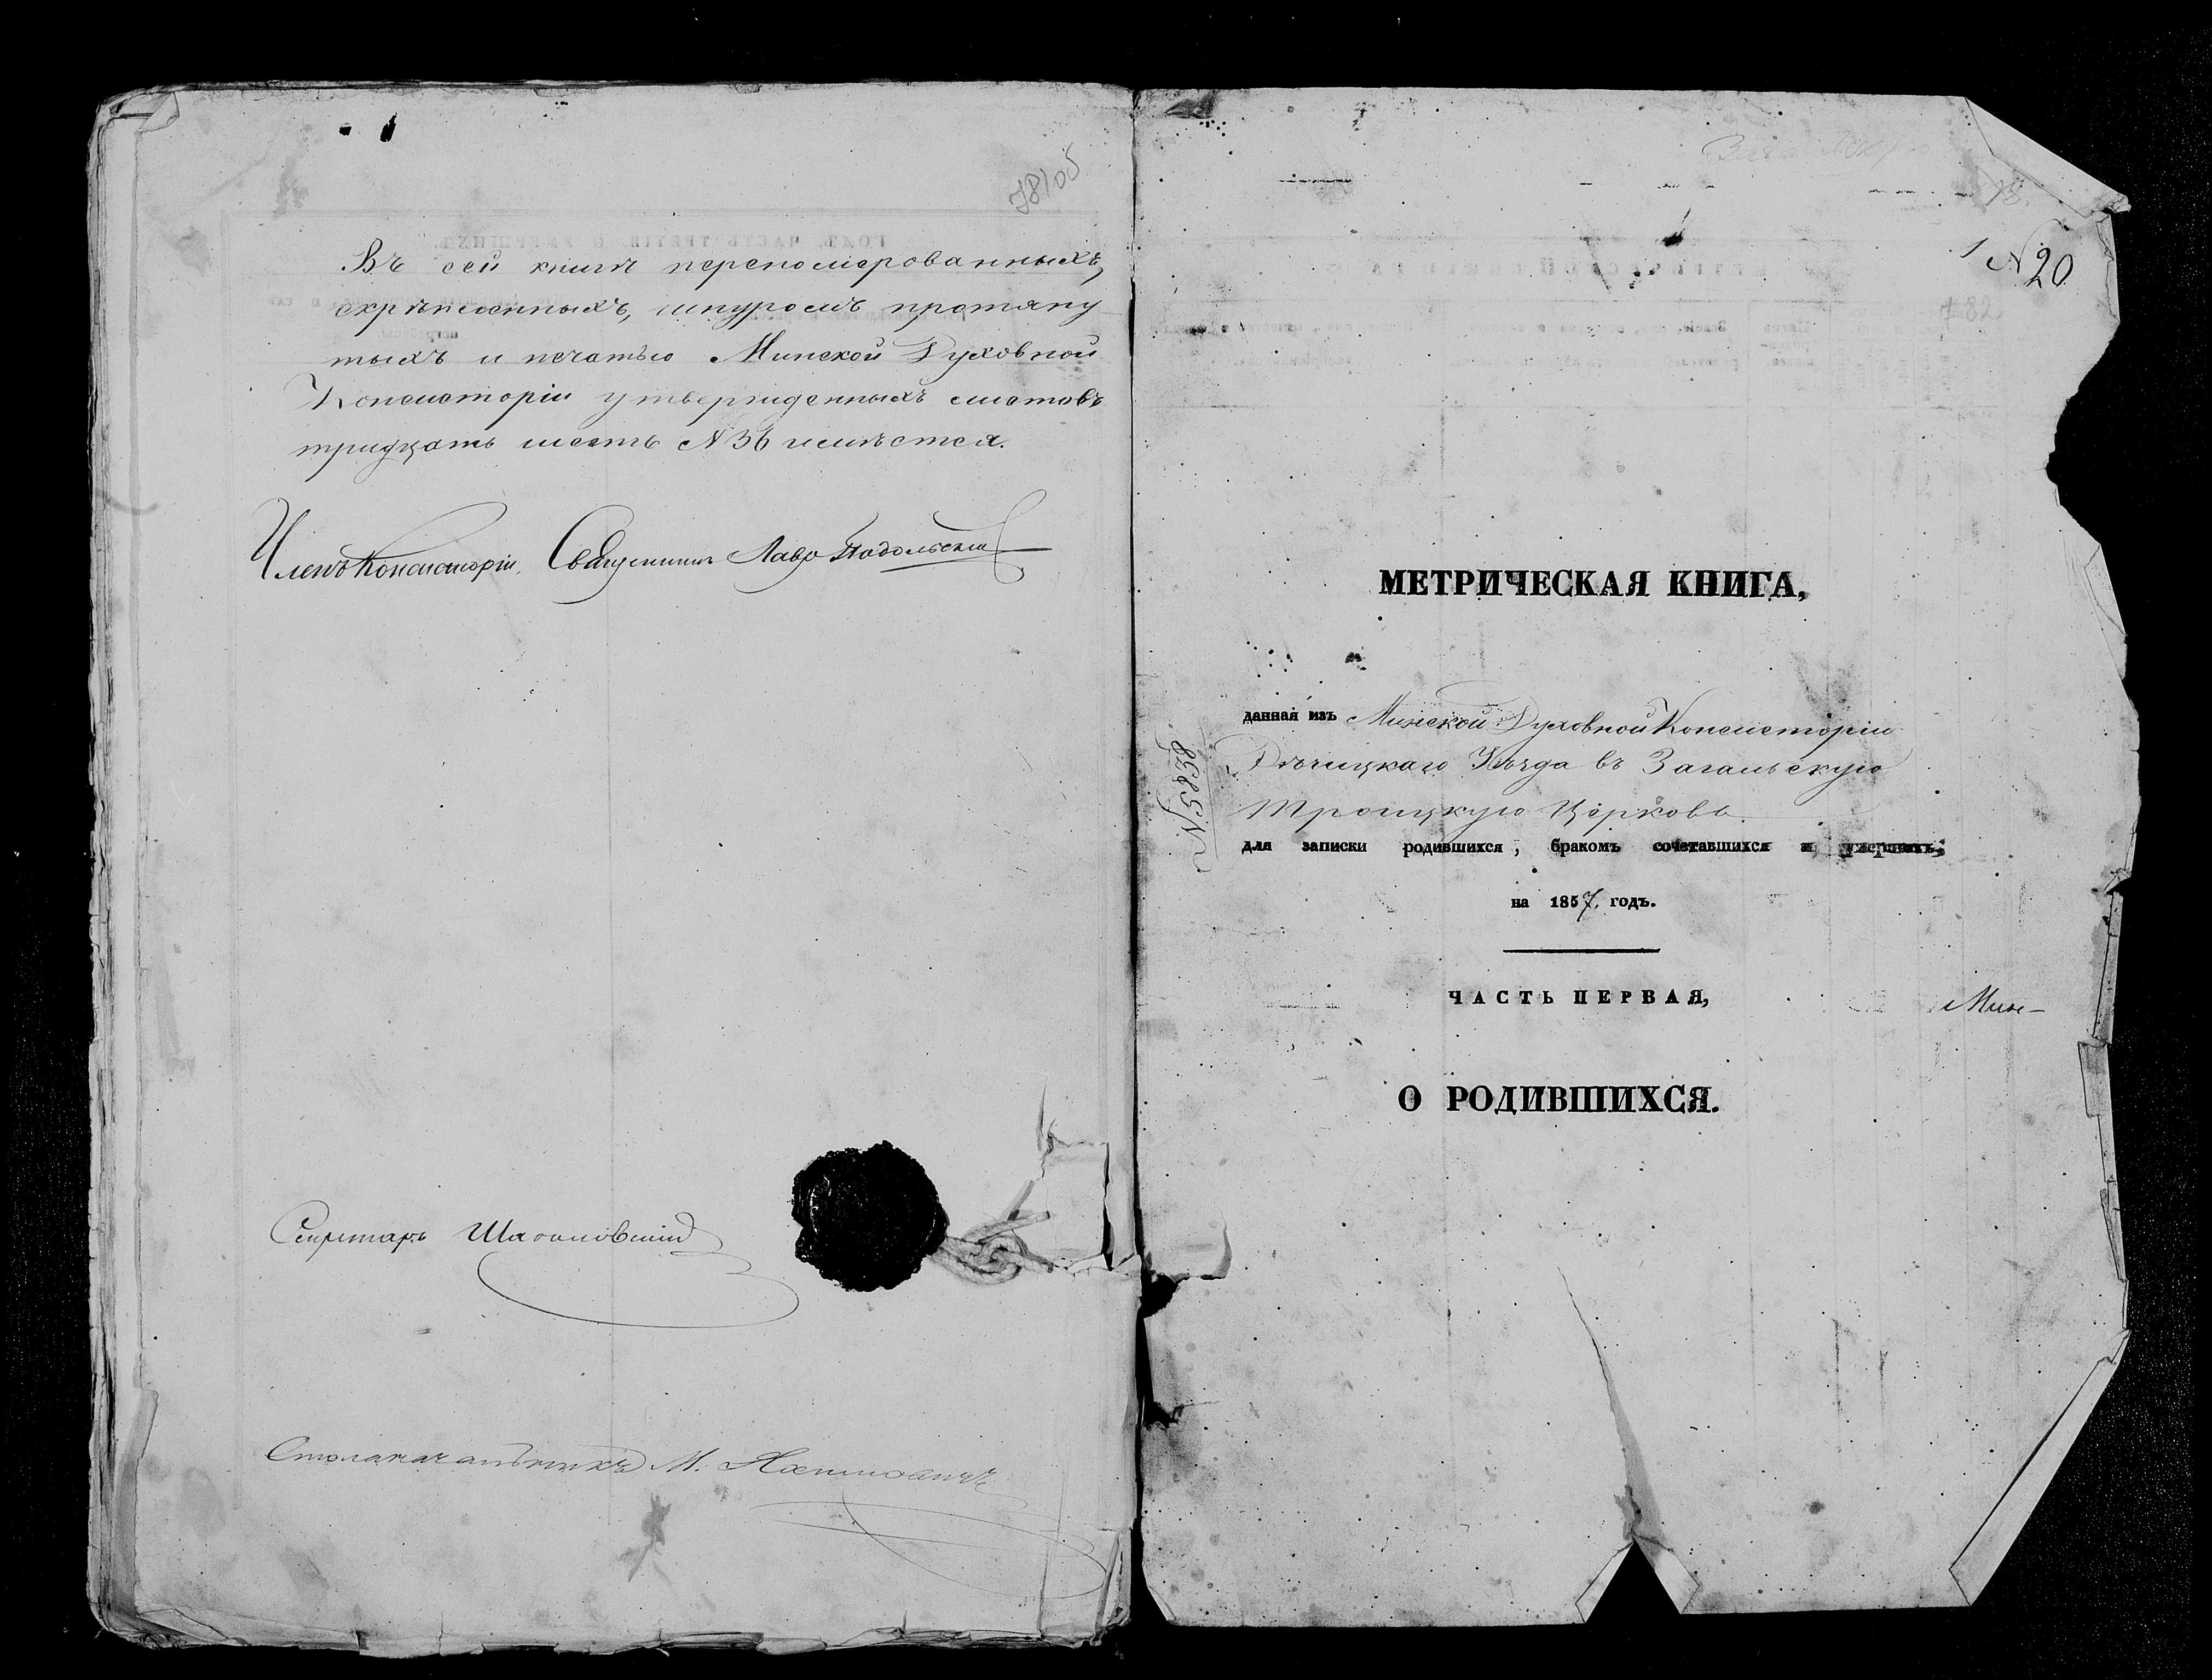 78/05
Въ сей книгѣ перенумерованныхъ,
скрѣпленныхъ, шнуромъ протяну
тыхъ и печатью Минской Духовной
Консисторіи утвержденныхъ листовъ
тридцать шесть N 36 имѣется.
Членъ Консисторіи, Священникъ Лавр Подольскій
Секретарь
Столоначальникъ М.
N 20
782
МЕТРИЧЕСКАЯ КНИГА,
данная изъ Минской Духовной Консисторіи
Рѣчицкаго Уѣзда въ Загальскую
Троицкую Церковь.
для записки родившихся, бракомъ сочетавшихся и умершихъ,
на 1857. годъ.
ЧАСТЬ ПЕРВАЯ,
Мин-
О РОДИВШИХСЯ.
N 5838